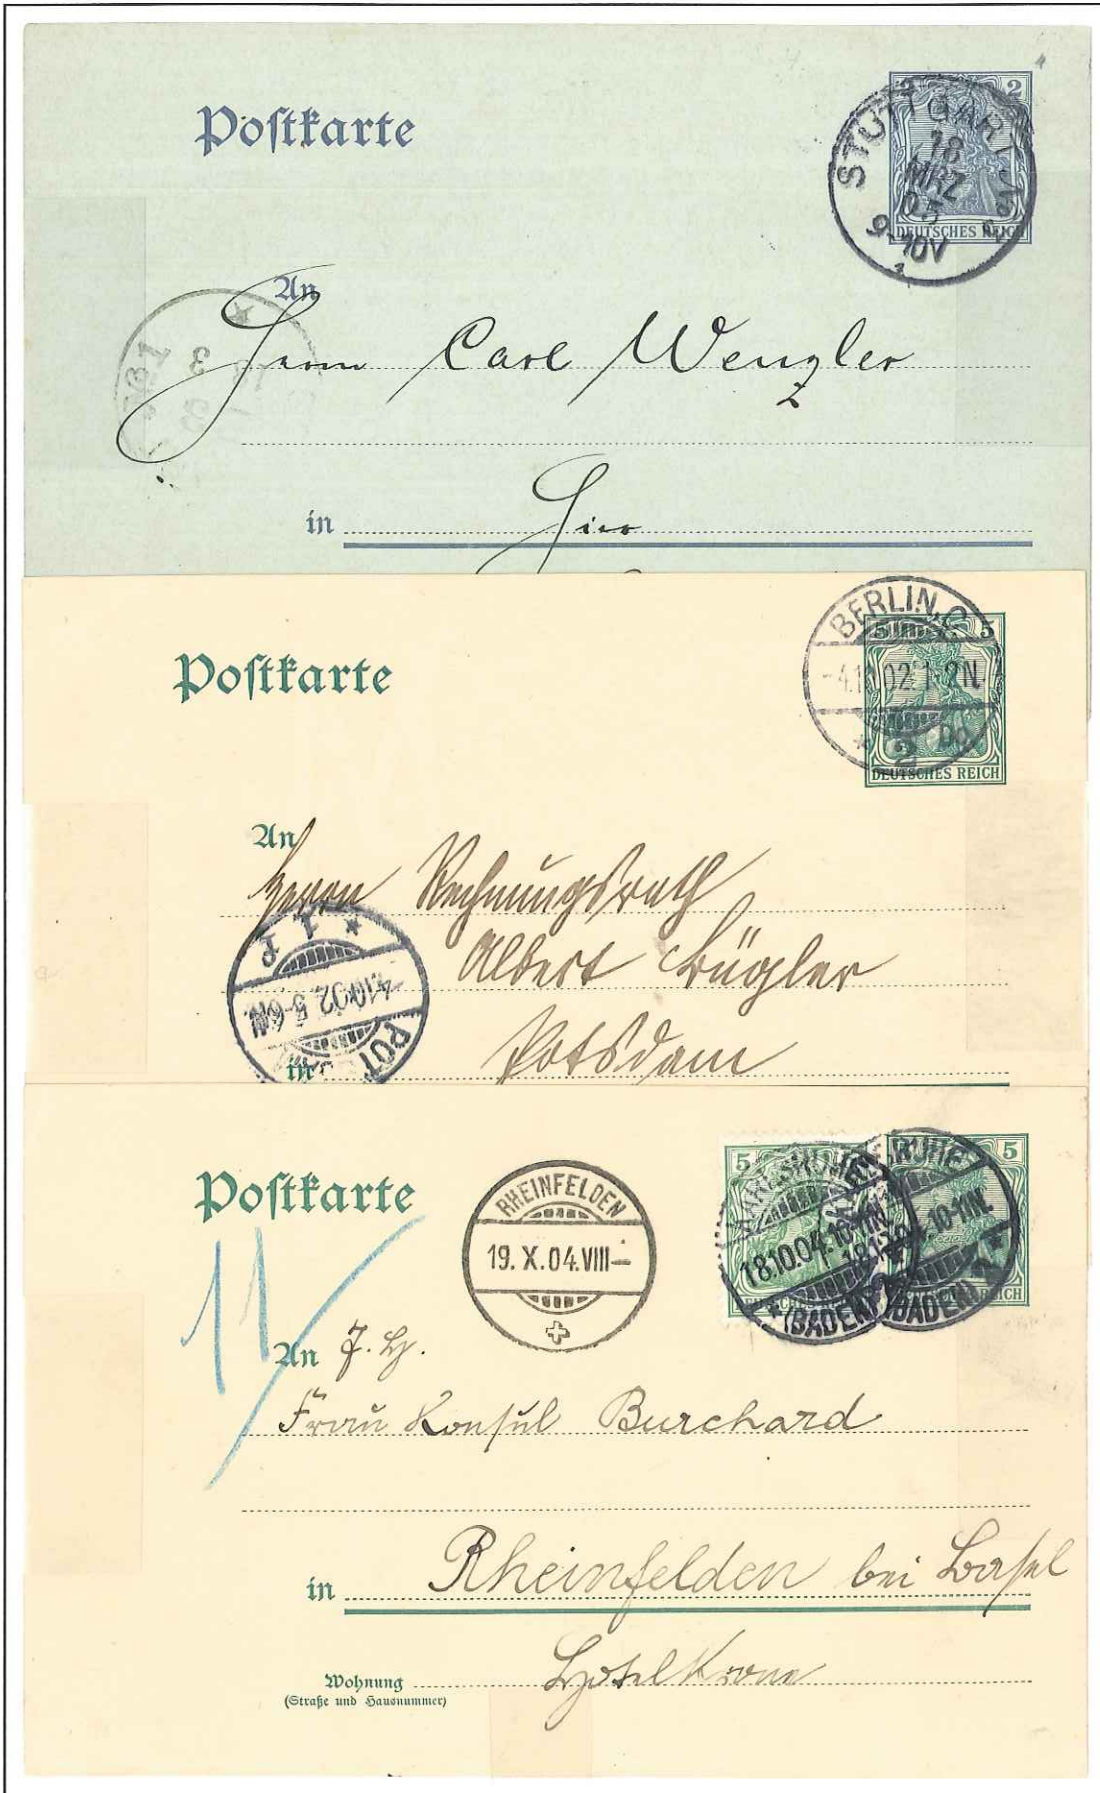 Postkarte
2
STUTTGART
18
MRZ
05
9-10V
1
DEUTSCHES REICH
An
Herrn Carl Wenzler
3
in Hier
Postkarte
BERLIN, C.
5 5
-4.10.02.1-2N.
* 2
DEUTSCHES REICH
An
Herrn Rechnungsrath
Albert Bügler
* 1
4.10.02. 5-6N.
POT
in Potsdam
Postkarte
RHEINFELDEN
19. X. 04. VIII–
5 5
KARLSRUHE
18.10.04. 10-11N.
10-11N.
(BADEN) (BADEN)
11
An
Frau Konsul Burchard
in Rheinfelden bei Basel
Wohnung Hotel Krone
(Straße und Hausnummer)